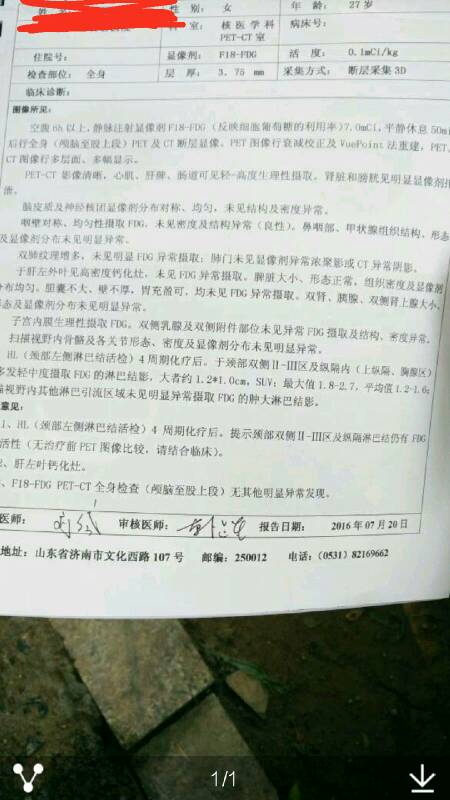 性 别: 女 年 龄: 27岁
室: 核医学科 PET-CT室 病床号:
住院号: 显像剂: F18-FDG 活 度: 0.1mCi/kg
检查部位: 全身 层 厚: 3.75 mm 采集方式: 断层采集3D
临床诊断:
图像所见:
空腹6h以上,静脉注射显像剂F18-FDG(反映细胞葡萄糖的利用率)7.0mCi,平静休息50mi
后行全身(颅脑至股上段)PET及CT断层显像。PET图像行衰减校正及VuePoint法重建,PET、
CT图像行多层面、多幅显示。
PET-CT影像清晰,心肌、肝脾、肠道可见轻-高度生理性摄取。肾脏和膀胱见明显显像剂排
泄。
脑皮质及神经核团显像剂分布对称、均匀,未见结构及密度异常。
咽壁对称、均匀性摄取FDG,未见密度及结构异常(良性)。鼻咽部、甲状腺组织结构、形态
及显像剂分布未见明显异常。
双肺纹理增多,未见明显FDG异常摄取;肺门未见显像剂异常浓聚影或CT异常阴影。
于肝左外叶见高密度钙化灶,未见FDG异常摄取。脾脏大小、形态正常,组织密度及显像剂
分布均匀。胆囊不大、壁不厚,胃充盈可、均未见FDG异常摄取。双肾、胰腺、双侧肾上腺大小、
形态及显像剂分布未见明显异常。
子宫内膜生理性摄取FDG。双侧乳腺及双侧附件部位未见异常FDG摄取及结构、密度异常。
扫描视野内骨骼及各关节形态、密度及显像剂分布未见明显异常。
HL(颈部左侧淋巴结活检)4周期化疗后。于颈部双侧II-III区及纵隔内(上纵隔、胸腺区)
多发轻中度摄取FDG的淋巴结影,大者约1.2*1.0cm,SUV:最大值1.8-2.7,平均值1.2-1.6;
描视野内其他淋巴引流区域未见明显异常摄取FDG的肿大淋巴结影。
意见:
1、HL(颈部左侧淋巴结活检)4周期化疗后。提示颈部双侧II-III区及纵隔淋巴结仍有FDG
活性(无治疗前PET图像比较,请结合临床)。
2、肝左叶钙化灶。
、F18-FDG PET-CT全身检查(颅脑至股上段)无其他明显异常发现。
医师: 审核医师: 报告日期: 2016年07月20日
地址:山东省济南市文化西路107号 邮编:250012 电话:(0531)82169662
1/1